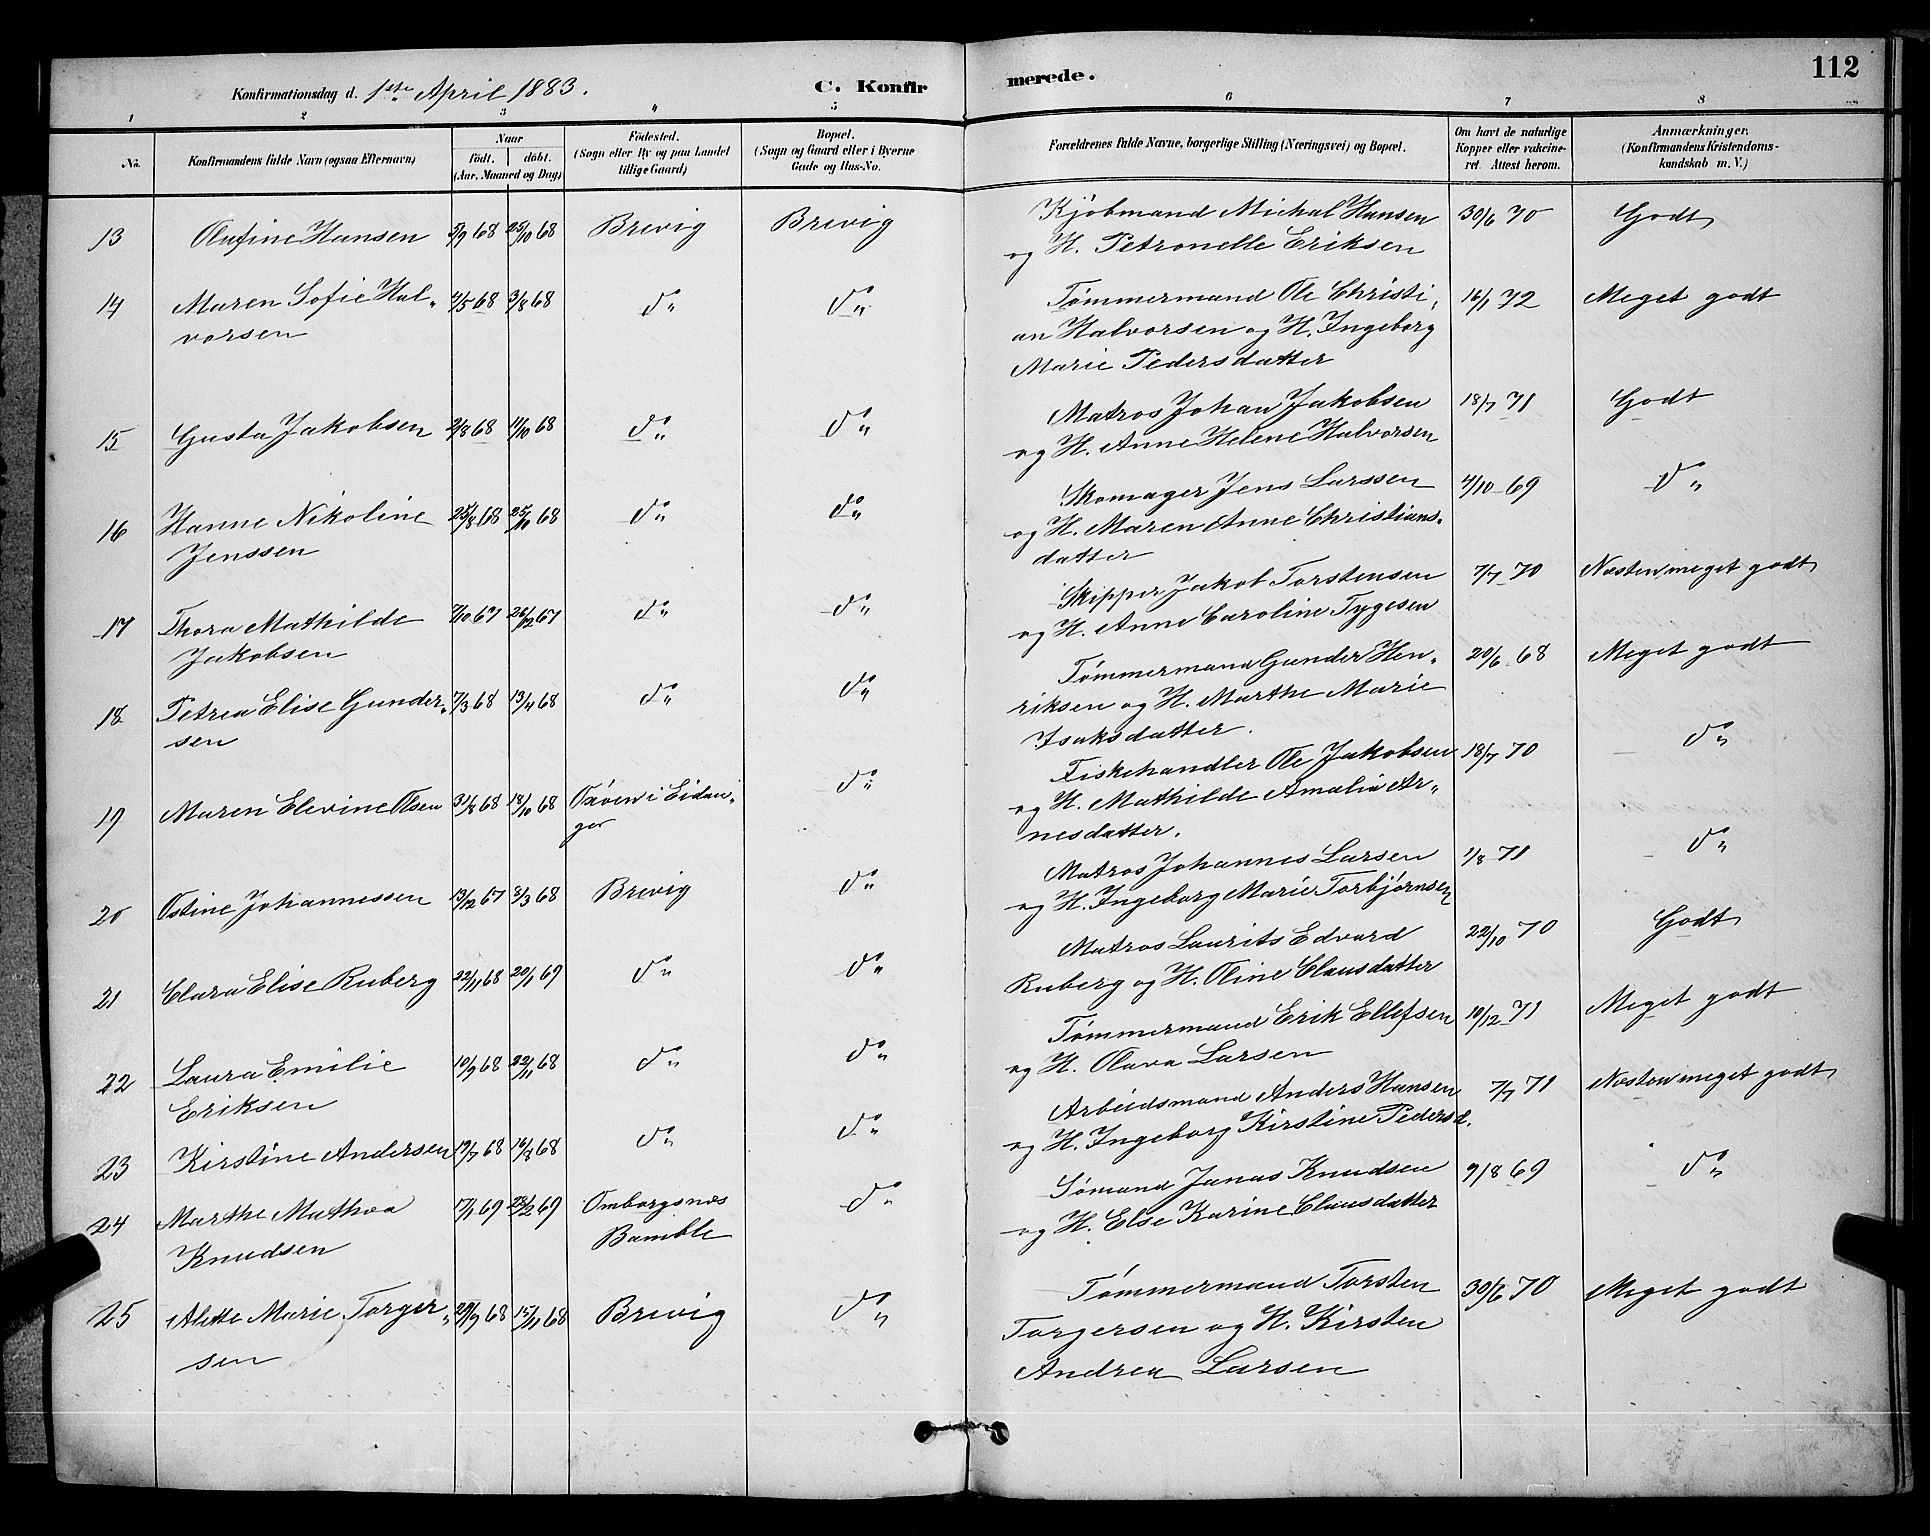 112
Konfirmationsdag d. 1ste April 1883.
C. Konfir merede.
1 2 3 4 5 6 7 8
No.
Konfirmandens fulde Navn (ogsaa Efternavn)
Naar
födt. döbt.
(Aar, Maaned og Dag)
Födested.
(Sogn eller By og paa Landet
tillige Gaard)
Bopæl.
(Sogn og Gaard eller i Byerne
Gade og Hus-No.
Forældrenes fulde Navne, borgerlige Stilling (Næringsvei) og Bopæl.
Om havt de naturlige
Kopper eller vakcine-
ret. Attest herom.
Anmærkninger.
(Konfirmandens Kristendoms-
kundskab m. V.)
13 Olufine Hansen 5/9 68 25/10 68 Brevig Brevig Kjøbmand Michal Hansen 30/6 70 Godt
og H. Petronelle Eriksen
14 Maren Sofie Hal- 4/5 68 3/8 68 do do Tømmermand Ole Christi- 16/1 72 Meget godt
vorsen an Halvorsen og H. Ingeborg
Marie Pedersdatter
15 Gusta Jakobsen 2/8 68 11/10 68 do do Matros Johan Jakobsen 18/7 71 Godt
og H. Anne Helene Halvorsen
16 Hanne Nikoline 25/8 68 25/10 68 do do Skomager Jens Larssen 4/10 69 do
Jenssen og H. Maren Anne Christians-
datter
17 Thora Mathilde 7/10 67 26/12 67 do do Skipper Jakob Torstensen 7/7 70 Næsten meget godt
Jakobsen og H. Anne Caroline Tygesen
18 Petrea Elise Gunder- 7/3 68 13/4 68 do do Tømmermand Gunder Hen- 20/6 68 Meget godt
sen riksen og H. Marthe Marie
Isaksdatter.
19 Maren Elevine Olsen 31/8 68 18/10 68 Oxven i Eidan- do Fiskehandler Ole Jakobsen 18/7 70 do
ger og H. Mathilde Amalia Ar-
nesdatter.
20 Ostine Johannessen 13/12 67 8/3 68 Brevig do Matros Johannes Larsen 1/8 71 do
og H. Ingeborg Marie Torbjørnsen
21 Clara Elise Ruberg 22/11 68 20/1 69 do do Matros Laurits Edvard 22/10 70 Godt
Ruberg og H. Oline Clausdatter
22 Laura Emilie 10/9 68 22/11 68 do do Tømmermand Erik Ellefsen 10/12 71 Meget godt
Eriksen og H. Olava Larsen
23 Kirstine Andersen 12/7 68 16/8 68 do do Arbeidsmand Anders Hansen 7/7 71 Næsten meget godt
og H. Ingeborg Kirstine Pedersd.
24 Marthe Mathea 17/1 69 28/2 69 Omborgsnæs do Sømand Jonas Knudsen 9/8 69 do
Knudsen Bamble og H. Else Karine Clausdatter
25 Alette Marie Torger- 29/9 68 15/11 68 Brevig do Tømmermand Torsten 30/6 70 Meget godt
sen Torgersen og H. Kirsten
Andrea Larsen